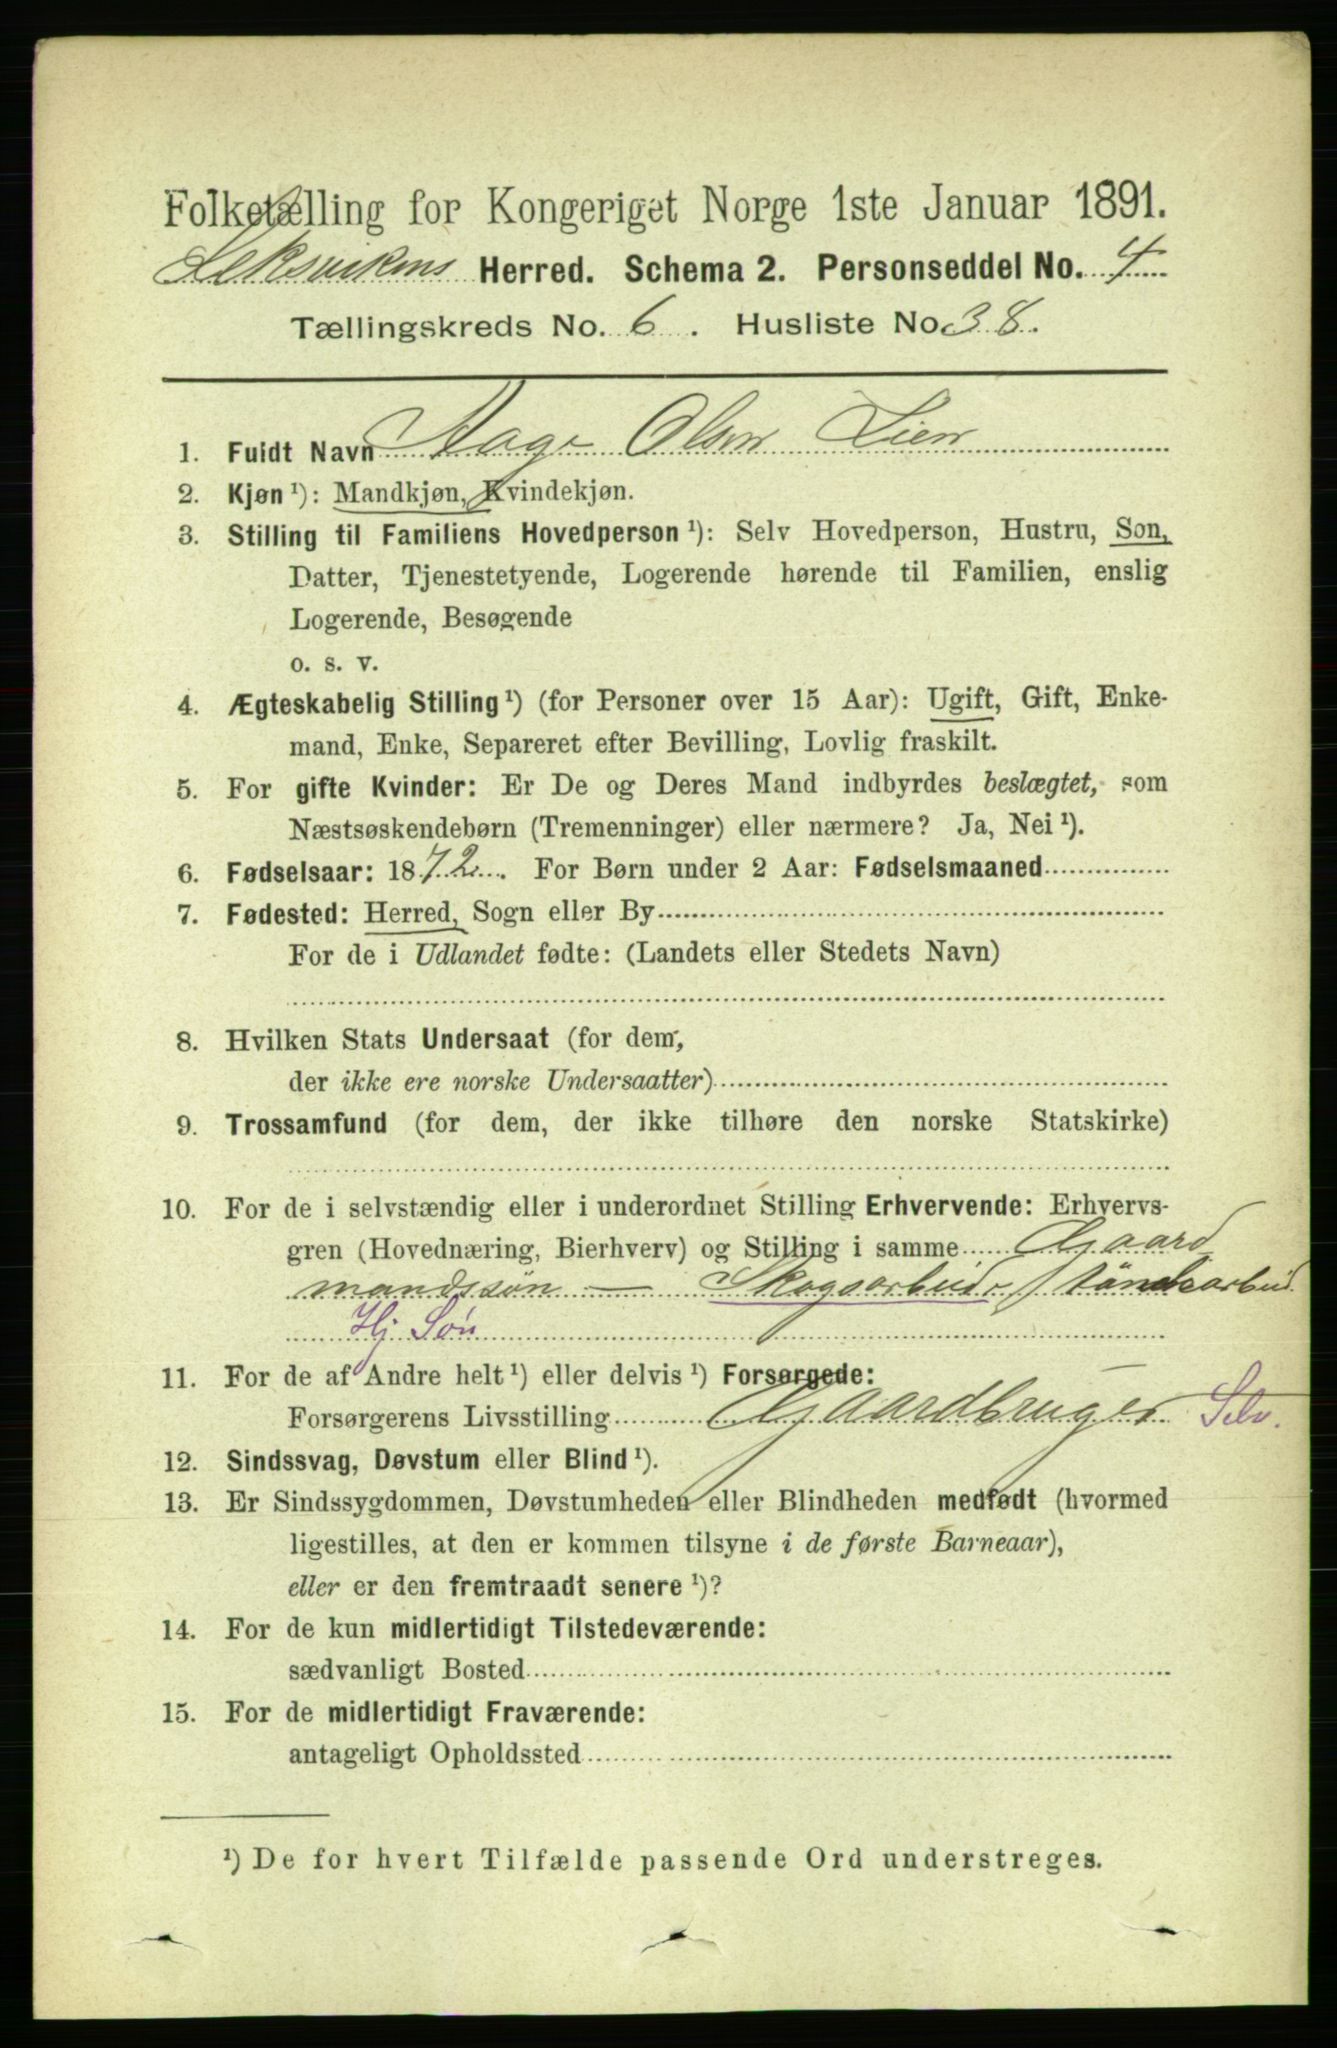 Folketælling for Kongeriget Norge 1ste Januar 1891.
Leksvikens Herred. Schema 2. Personseddel No. 4
Tællingskreds No. 6. Husliste No. 38.
1. Fuldt Navn Aage Olsen Lien
2. Kjøn ¹): Mandkjøn, Kvindekjøn.
3. Stilling til Familiens Hovedperson ¹): Selv Hovedperson, Hustru, Søn,
Datter, Tjenestetyende, Logerende hørende til Familien, enslig
Logerende, Besøgende
o. s. v.
4. Ægteskabelig Stilling ¹) (for Personer over 15 Aar): Ugift, Gift, Enke-
mand, Enke, Separeret efter Bevilling, Lovlig fraskilt.
5. For gifte Kvinder: Er De og Deres Mand indbyrdes beslægtet, som
Næstsøskendebørn (Tremenninger) eller nærmere? Ja, Nei ¹).
6. Fødselsaar: 1872. For Børn under 2 Aar: Fødselsmaaned
7. Fødested: Herred, Sogn eller By
For de i Udlandet fødte: (Landets eller Stedets Navn)
8. Hvilken Stats Undersaat (for dem,
der ikke ere norske Undersaatter)
9. Trossamfund (for dem, der ikke tilhøre den norske Statskirke)
10. For de i selvstændig eller i underordnet Stilling Erhvervende: Erhvervs-
gren (Hovednæring, Bierhverv) og Stilling i samme Gaard
mandssøn — Skogsarbeid
Hj Søn
11. For de af Andre helt ¹) eller delvis ¹) Forsørgede:
Forsørgerens Livsstilling Gaardbruger Selv.
12. Sindssvag, Døvstum eller Blind ¹).
13. Er Sindssygdommen, Døvstumheden eller Blindheden medfødt (hvormed
ligestilles, at den er kommen tilsyne i de første Barneaar),
eller er den fremtraadt senere ¹)?
14. For de kun midlertidigt Tilstedeværende:
sædvanligt Bosted
15. For de midlertidigt Fraværende:
antageligt Opholdssted
¹) De for hvert Tilfælde passende Ord understreges.